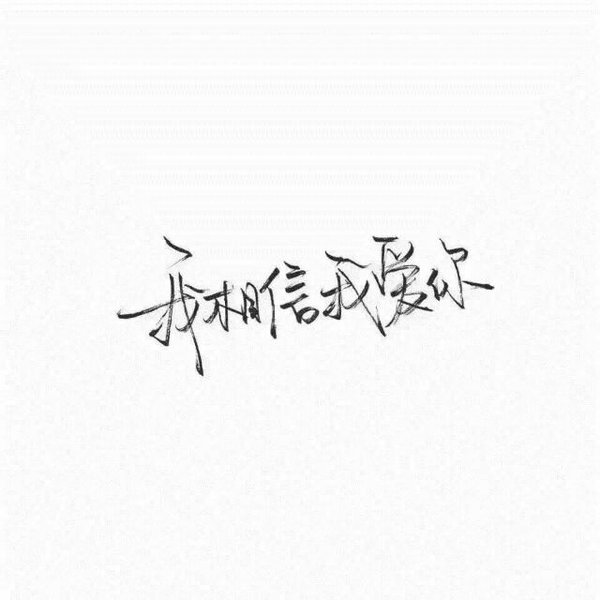 我相信我爱你